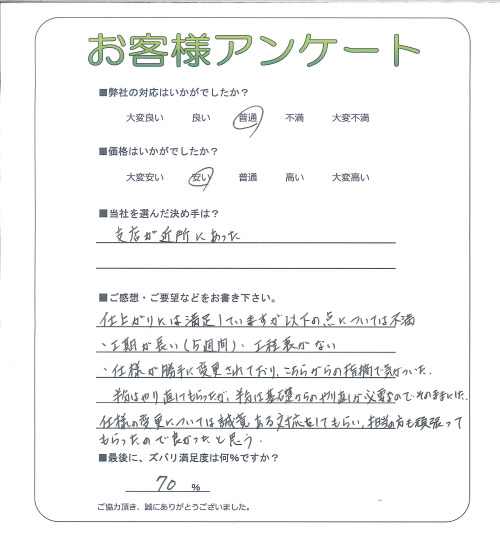 お客様アンケート
■弊社の対応はいかがでしたか？
大変良い 良い 普通 不満 大変不満
■価格はいかがでしたか？
大変安い 安い 普通 高い 大変高い
■当社を選んだ決め手は？
支店が近所にあった
■ご感想・ご要望などをお書き下さい。
仕上がりには満足していますが以下の点については不満
・工期が長い(5週間)・工程表がない
・仕様が勝手に変更されており、こちらからの指摘で気がついた。
半分はやり直してもらったが、半分は基礎からのやり直しが必要なので、そのままにした。
仕様の変更については誠意ある対応をしてもらい、担当の方も頑張って
もらったので良かったと思う.
■最後に、ズバリ満足度は何%ですか？
70 %
ご協力頂き、誠にありがとうございました。